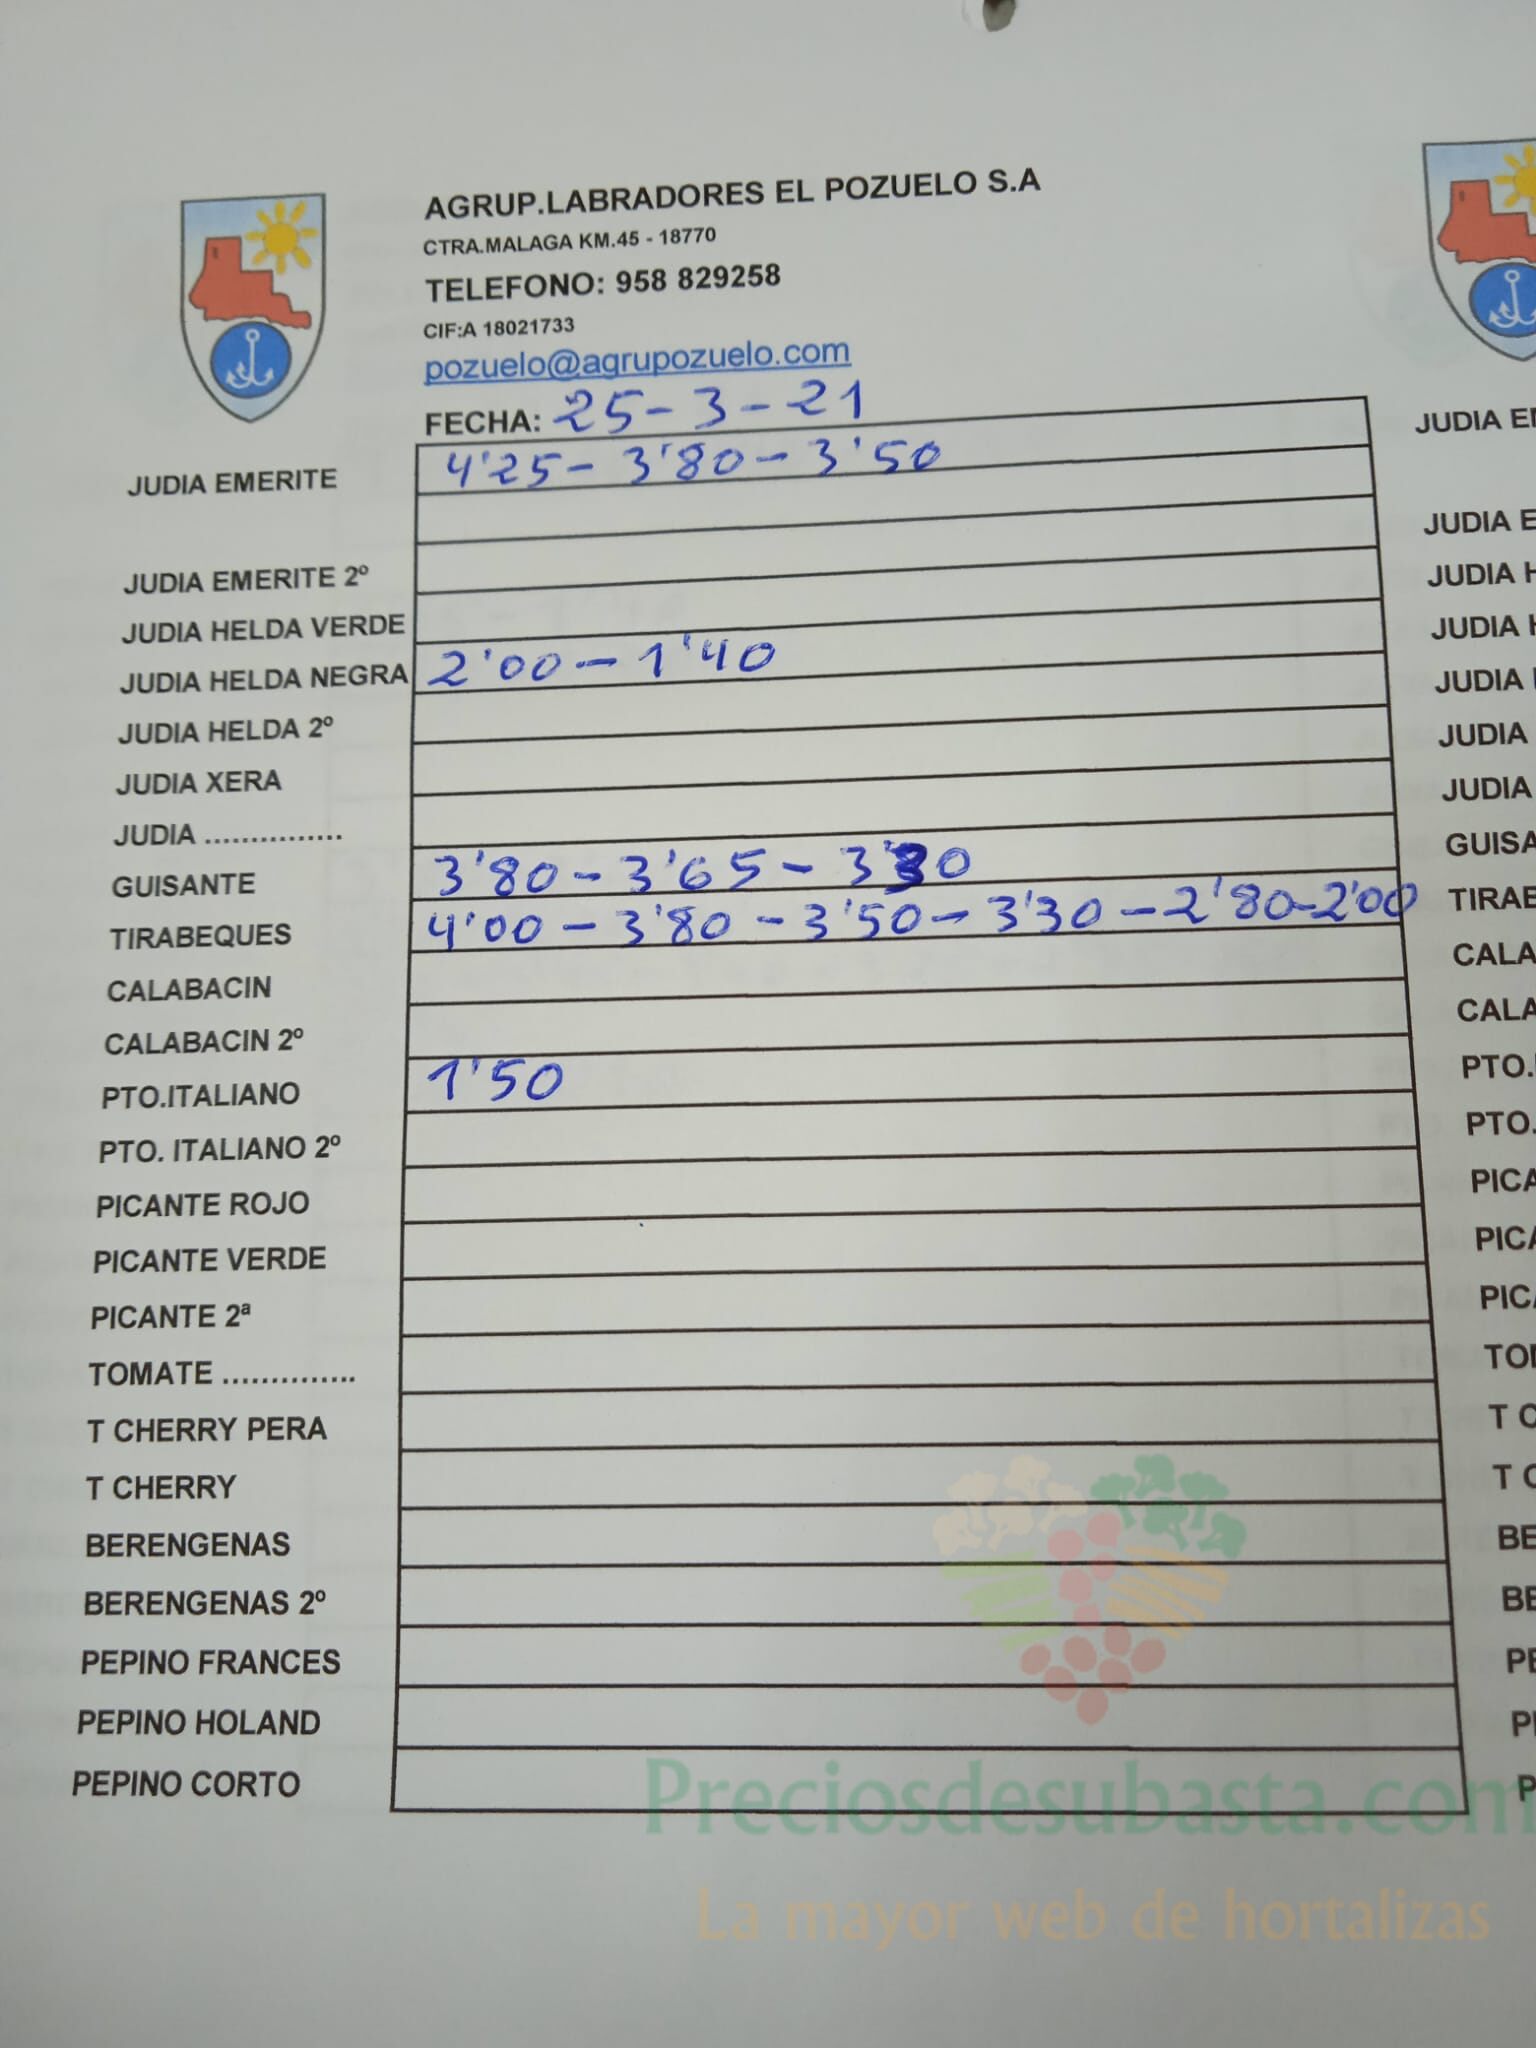 AGRUP.LABRADORES EL POZUELO S.A
CTRA.MALAGA KM.45 - 18770
TELEFONO: 958 829258
CIF:A 18021733
pozuelo@agrupozuelo.com
FECHA: 25-3-21
JUDIA EMERITE 4'25 - 3'80 - 3'50
JUDIA EMERITE 2º
JUDIA HELDA VERDE
JUDIA HELDA NEGRA 2'00 - 1'40
JUDIA HELDA 2º
JUDIA XERA
JUDIA ...............
GUISANTE 3'80 - 3'65 - 3'30
TIRABEQUES 4'00 - 3'80 - 3'50 - 3'30 - 2'80 - 2'00
CALABACIN
CALABACIN 2º
PTO.ITALIANO 1'50
PTO. ITALIANO 2º
PICANTE ROJO
PICANTE VERDE
PICANTE 2ª
TOMATE ..............
T CHERRY PERA
T CHERRY
BERENGENAS
BERENGENAS 2º
PEPINO FRANCES
PEPINO HOLAND
PEPINO CORTO
JUDIA
JUDIA
JUDIA
JUDIA
JUDIA
JUDIA
JUDIA
Preciosdesubasta.com
La mayor web de hortalizas